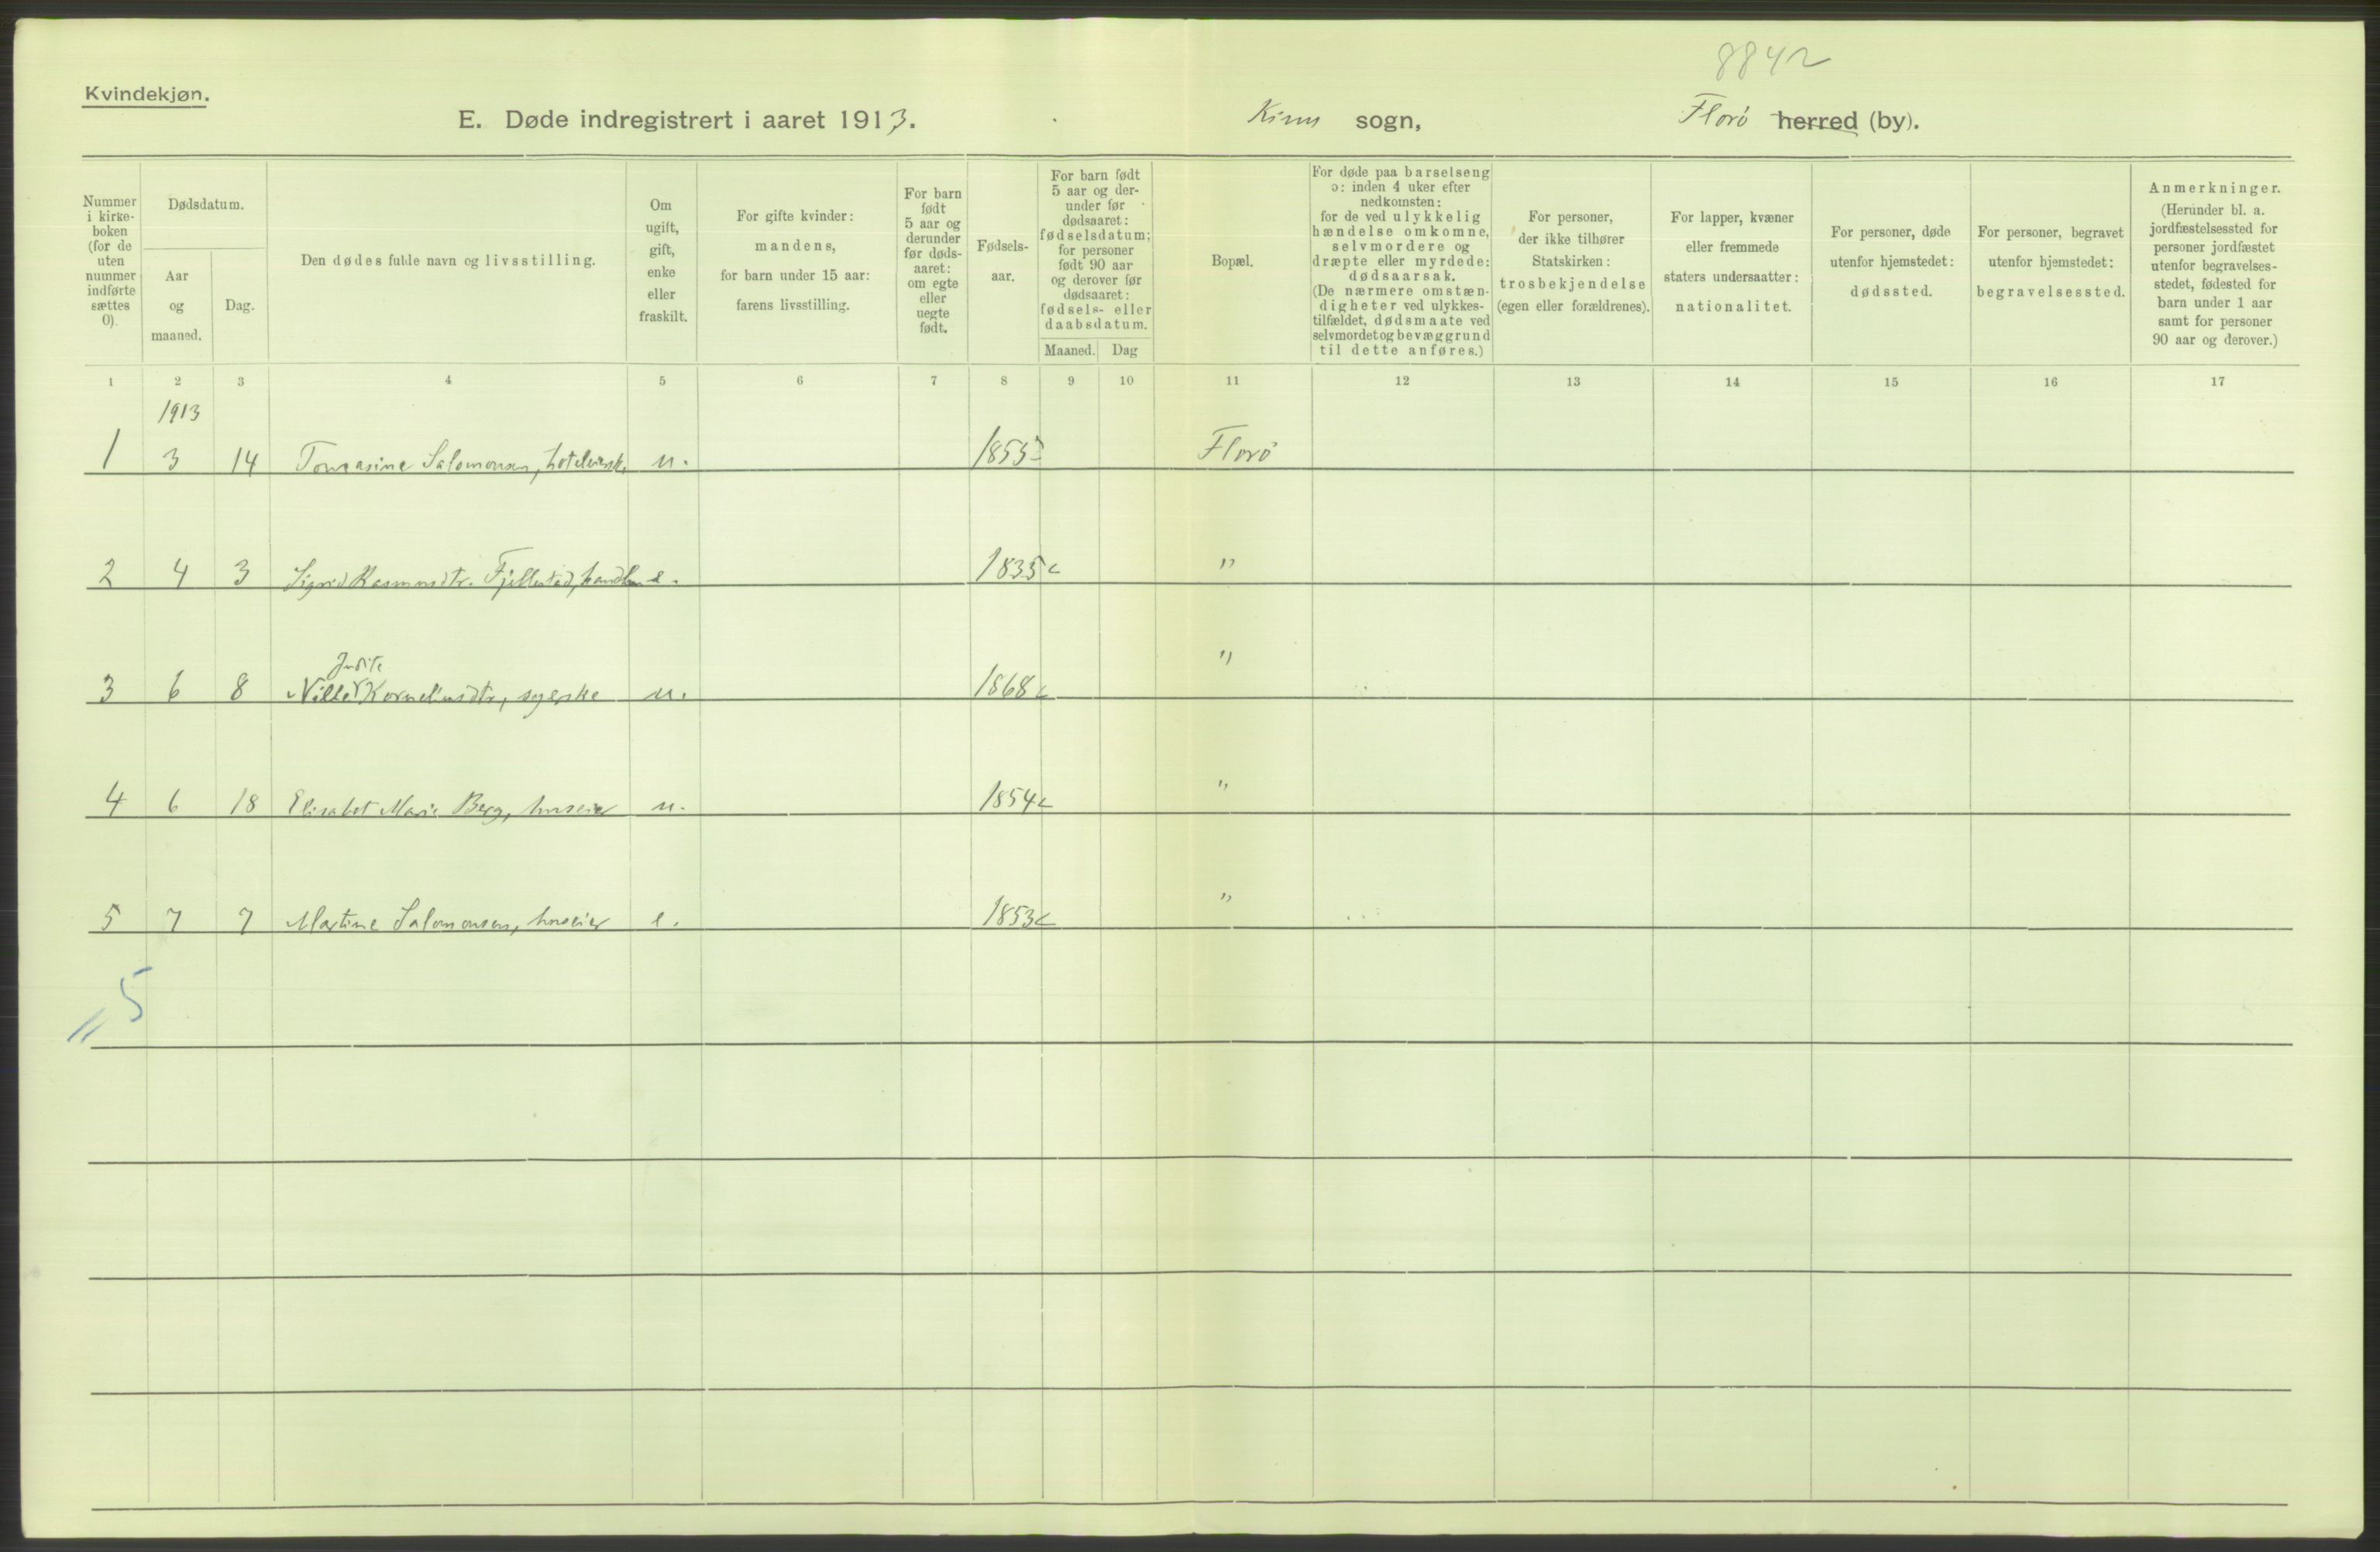 8842
Kvindekjøn.
E. Døde indregistrert i aaret 1913. Kinn sogn, Florø herred (by).
Nummer i kirke-boken (for de uten nummer indførte sættes 0).
Dødsdatum.
Aar og maaned.
Dag.
Den dødes fulde navn og livsstilling.
Om ugift, gift, enke eller fraskilt.
For gifte kvinder: mandens, for barn under 15 aar: farens livsstilling.
For barn født 5 aar og derunder før døds-aaret: om egte eller uegte født.
Fødsels-aar.
For barn født 5 aar og der-under før dødsaaret: fødselsdatum; for personer født 90 aar og derover før dødsaaret: fødsels- eller daabsdatum.
Maaned. Dag
Bopæl.
For døde paa barselseng ɔ: inden 4 uker efter nedkomsten: for de ved ulykkelig hændelse omkomne, selvmordere og dræpte eller myrdede: dødsaarsak. (De nærmere omstæn-digheter ved ulykkes-tilfældet, dødsmaate ved selvmordet og bevæggrund til dette anføres.)
For personer, der ikke tilhører Statskirken: trosbekjendelse (egen eller forældrenes).
For lapper, kvæner eller fremmede staters undersaatter: nationalitet.
For personer, døde utenfor hjemstedet: dødssted.
For personer, begravet utenfor hjemstedet: begravelsessted.
Anmerkninger. (Herunder bl. a. jordfæstelsessted for personer jordfæstet utenfor begravelses-stedet, fødested for barn under 1 aar samt for personer 90 aar og derover.)
1 2 3 4 5 6 7 8 9 10 11 12 13 14 15 16 17
1913
1 3 14 Tomasine Salomonsen, u. 1853 Florø
2 4 3 Sigrid Rasmusdtr. Fjellestad, e. 1835 "
Judite
3 6 8 Nille Korneliusdtr, syerske u. 1868 "
4 6 18 Elisabet Marie Berg, huseier u. 1854 "
5 7 7 Martine Salomonsen, huseier e. 1853 "
5